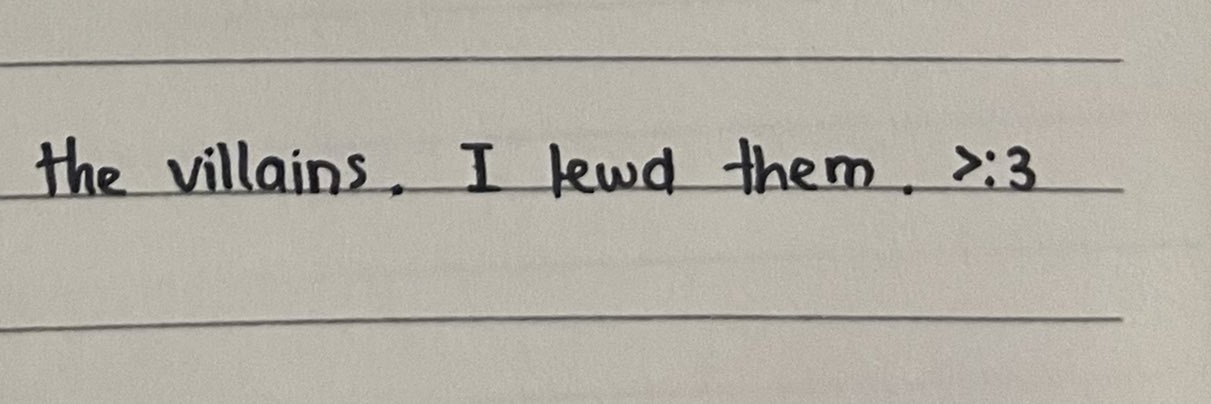 the villains. I lewd them. >:3